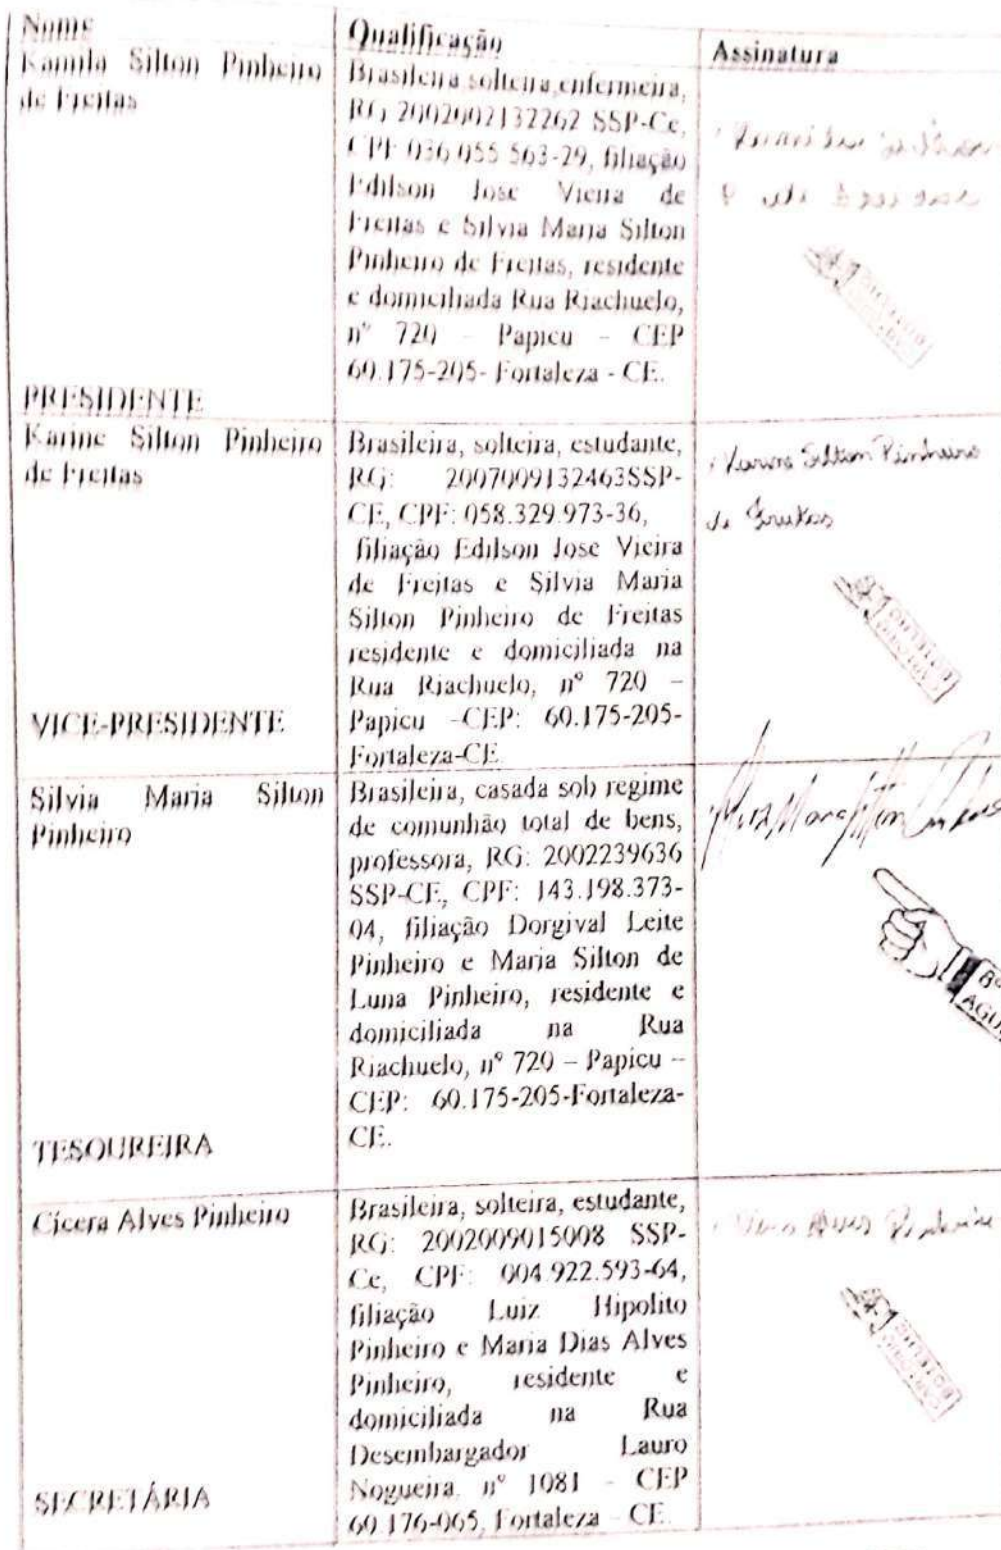 Nome
Kamila Silton Pinheiro
de Freitas
PRESIDENTE
Qualificação
Brasileira solteira, enfermeira,
RG 2002002132262 SSP-Ce,
CPF 036.055.563-29, filiação
Edilson Jose Vieira de
Freitas e Silvia Maria Silton
Pinheiro de Freitas, residente
e domiciliada Rua Riachuelo,
nº 720 – Papicu – CEP
60.175-205- Fortaleza - CE.
Assinatura
Karine Silton Pinheiro
de Freitas
VICE-PRESIDENTE
Brasileira, solteira, estudante,
RG: 2007009132463SSP-
CE, CPF: 058.329.973-36,
filiação Edilson Jose Vieira
de Freitas e Silvia Maria
Silton Pinheiro de Freitas
residente e domiciliada na
Rua Riachuelo, nº 720 –
Papicu -CEP: 60.175-205-
Fortaleza-CE.
Karine Silton Pinheiro
de Freitas
Silvia Maria Silton
Pinheiro
TESOUREIRA
Brasileira, casada sob regime
de comunhão total de bens,
professora, RG: 2002239636
SSP-CE, CPF: 143.198.373-
04, filiação Dorgival Leite
Pinheiro e Maria Silton de
Luna Pinheiro, residente e
domiciliada na Rua
Riachuelo, nº 720 – Papicu –
CEP: 60.175-205-Fortaleza-
CE.
8º
AGU
Cícera Alves Pinheiro
SECRETÁRIA
Brasileira, solteira, estudante,
RG: 2002009015008 SSP-
Ce, CPF: 004.922.593-64,
filiação Luiz Hipolito
Pinheiro e Maria Dias Alves
Pinheiro, residente e
domiciliada na Rua
Desembargador Lauro
Nogueira, nº 1081 - CEP
60.176-065, Fortaleza – CE.
Alves Pinheiro